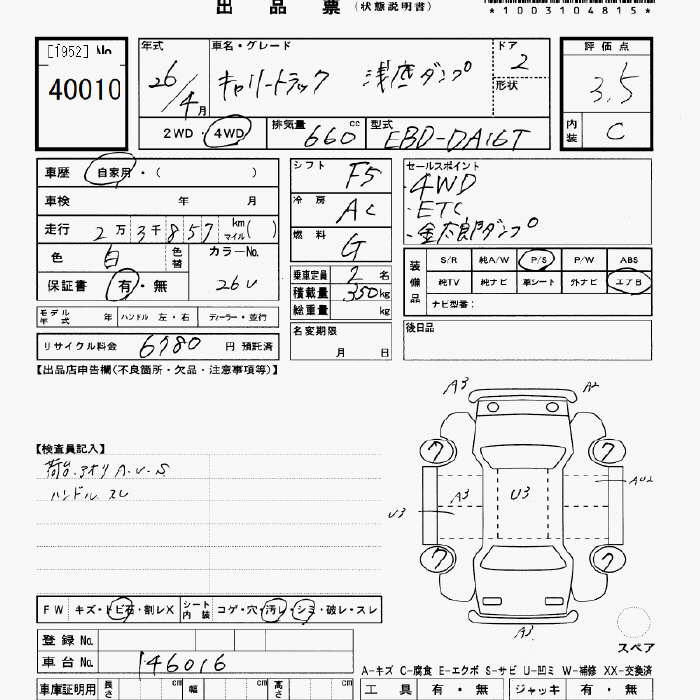 出 品 票 (状態説明書)
*1003104815*
[1952] No
40010
年式 車名・グレード ドア 評価点
26/4月 キャリートラック 浅底ダンプ 2 3.5
形状
2WD・4WD 排気量 660 cc 型式 EBD-DA16T 内装 C
車歴 自家用・( )
車検 年 月
走行 2万3千857 km マイル( )
色 白 色替 カラーNo. 26U
保証書 有・無
モデル年式 年 ハンドル 左・右 ディーラー・並行
リサイクル料金 6780 円 預託済
シフト F5
冷房 AC
燃料 G
乗車定員 2 名
積載量 350 kg
総重量 kg
名変期限
月 日
セールスポイント
・4WD
・ETC
・金太郎ダンプ
装備品 S/R 純A/W P/S P/W ABS
純TV 純ナビ 革シート 外ナビ エアB
ナビ型番:
後日品
【出品店申告欄(不良箇所・欠品・注意事項等)】
【検査員記入】
荷台・アオリ A・U・S
ハンドル スレ
A3 A2
7 7
A3 U3 AU2
U3
7 7
A3
スペア
FW キズ・トビ石・割レX シート内装 コゲ・穴・汚レ・シミ・破レ・スレ
登録 No.
車台 No. 146016
A-キズ C-腐食 E-エクボ S-サビ U-凹ミ W-補修 XX-交換済
車庫証明用 長さ cm 幅 cm 高さ cm 工具 有・無 ジャッキ 有・無